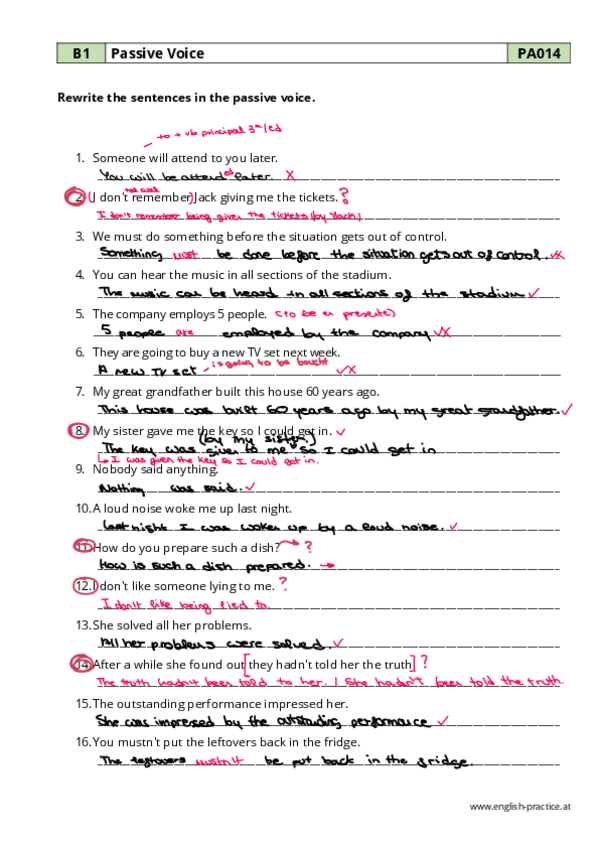 B1 Passive Voice PA014
Rewrite the sentences in the passive voice.
to + vb principal 3ª/ed
1. Someone will attend to you later.
You will be attended later. X
too well
2. (I don't remember) Jack giving me the tickets. ?
I don't remember being given the tickets (by Jack)
3. We must do something before the situation gets out of control.
Something must be done before the situation gets out of control.
4. You can hear the music in all sections of the stadium.
The music can be heard in all sections of the stadium ✓
5. The company employs 5 people. (to be en presente)
5 people are employed by the company ✓X
6. They are going to buy a new TV set next week.
A new TV set is going to be bought ✓X
7. My great grandfather built this house 60 years ago.
This house was built 60 years ago by my great grandfather. ✓
8. My sister gave me the key so I could get in. ✓
(by my sister)
The key was given to me so I could get in
↳ I was given the key so I could get in.
9. Nobody said anything.
Nothing was said. ✓
10. A loud noise woke me up last night.
Last night I was woken up by a loud noise. ✓
11. How do you prepare such a dish? ?
How is such a dish prepared. →
12. I don't like someone lying to me. ?
I don't like being lied to.
13. She solved all her problems.
All her problems were solved. ✓
14. After a while she found out [they hadn't told her the truth] ?
The truth hadn't been told to her. / She hadn't been told the truth.
15. The outstanding performance impressed her.
She was impressed by the outstanding performance ✓
16. You mustn't put the leftovers back in the fridge.
The leftovers mustn't be put back in the fridge.
www.english-practice.at